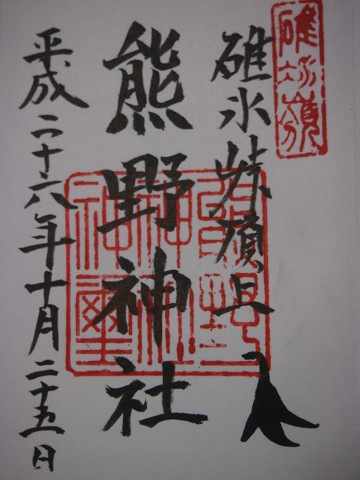 碓氷嶺
碓氷峠頂上
熊野神社
平成二十六年十月二十五日